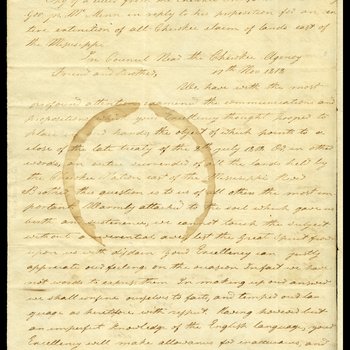 Gov. Jos. McMinn in reply to his proposition for an en
tire extinction of all Cherokee claim of lands east of
the Mississippi
In Council Near the Cherokee Agency
Friend and Brother, 17th Nov 1818
We have with the most
profound attention examined the communications and
propositions which your Excellency thought proper to
place in our hands, the object of which points to a
close of the late treaty of the 8th July 1817 Or in other
words, an entire surrender of all the lands held by
the Cherokee Nation east of the Mississippi River
Brother the question is to us of all others the most im
portant. Warmly attached to the soil which gave us
birth and sustenance, we cannot touch the subject
without a reverential awe, lest the Great Spirit frown
upon us with disdain. Your Excellency can justly
appreciate our feelings on the occasion. In fact we have
not words to express them. In making up our answer
we shall confine ourselves to facts, and temper our lan
guage as heretofore with respect. Having however but
an imperfect knowledge of the English language, your
Excellency will make allowances for inaccuracies, and